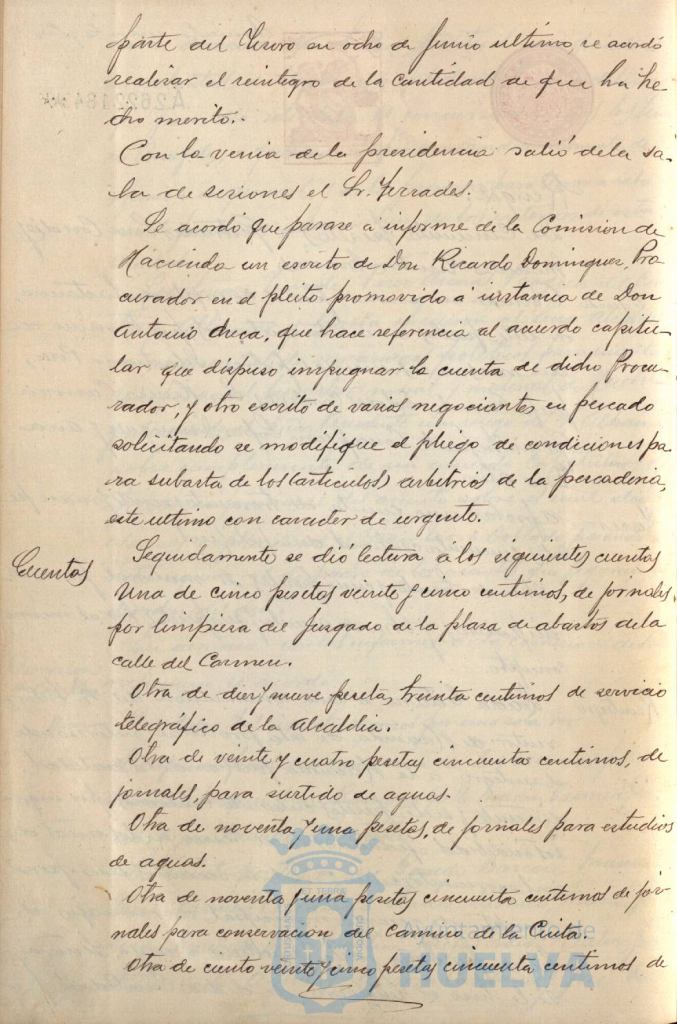 parte del Tesoro en ocho de Junio ultimo, se acordó
realizar el reintegro de la cantidad de que ha he
cho merito.
Con la venia de la presidencia salió de la sa-
la de sesiones el Sr. Terrades.
Se acordó que pasase á informe de la Comision de
Hacienda un escrito de Don Ricardo Dominguez, Pro
curador en el pleito promovido á instancia de Don
Antonio Checa, que hace referencia al acuerdo capitu-
lar que dispuso impugnar la cuenta de dicho Procu-
rador, y otro escrito de varios negociantes en pescado
solicitando se modifique el pliego de condiciones pa-
ra subasta de los (articulos) arbitrios de la pescaderia,
este ultimo con caracter de urgente.
Cuentas
Seguidamente se dió lectura á los siguientes cuentas
Una de cinco pesetas veinte y cinco centimos, de jornales,
por limpiesa del Juzgado de la plasa de abastos de la
calle del Carmen.
Otra de diez y nueve peseta, treinta centimos de servicio
telegráfico de la Alcaldia.
Otra de veinte y cuatro pesetas cincuenta centimos, de
jornales, para surtido de aguas.
Otra de noventa y una pesetas, de jornales para estudios
de aguas.
Otra de noventa y una pesetas cincuenta centimos de jor-
nales para conservacion del Camino de la Cinta.
Otra de ciento veinte y cinco pesetas cincuenta centimos de
Ayuntamiento de
HUELVA